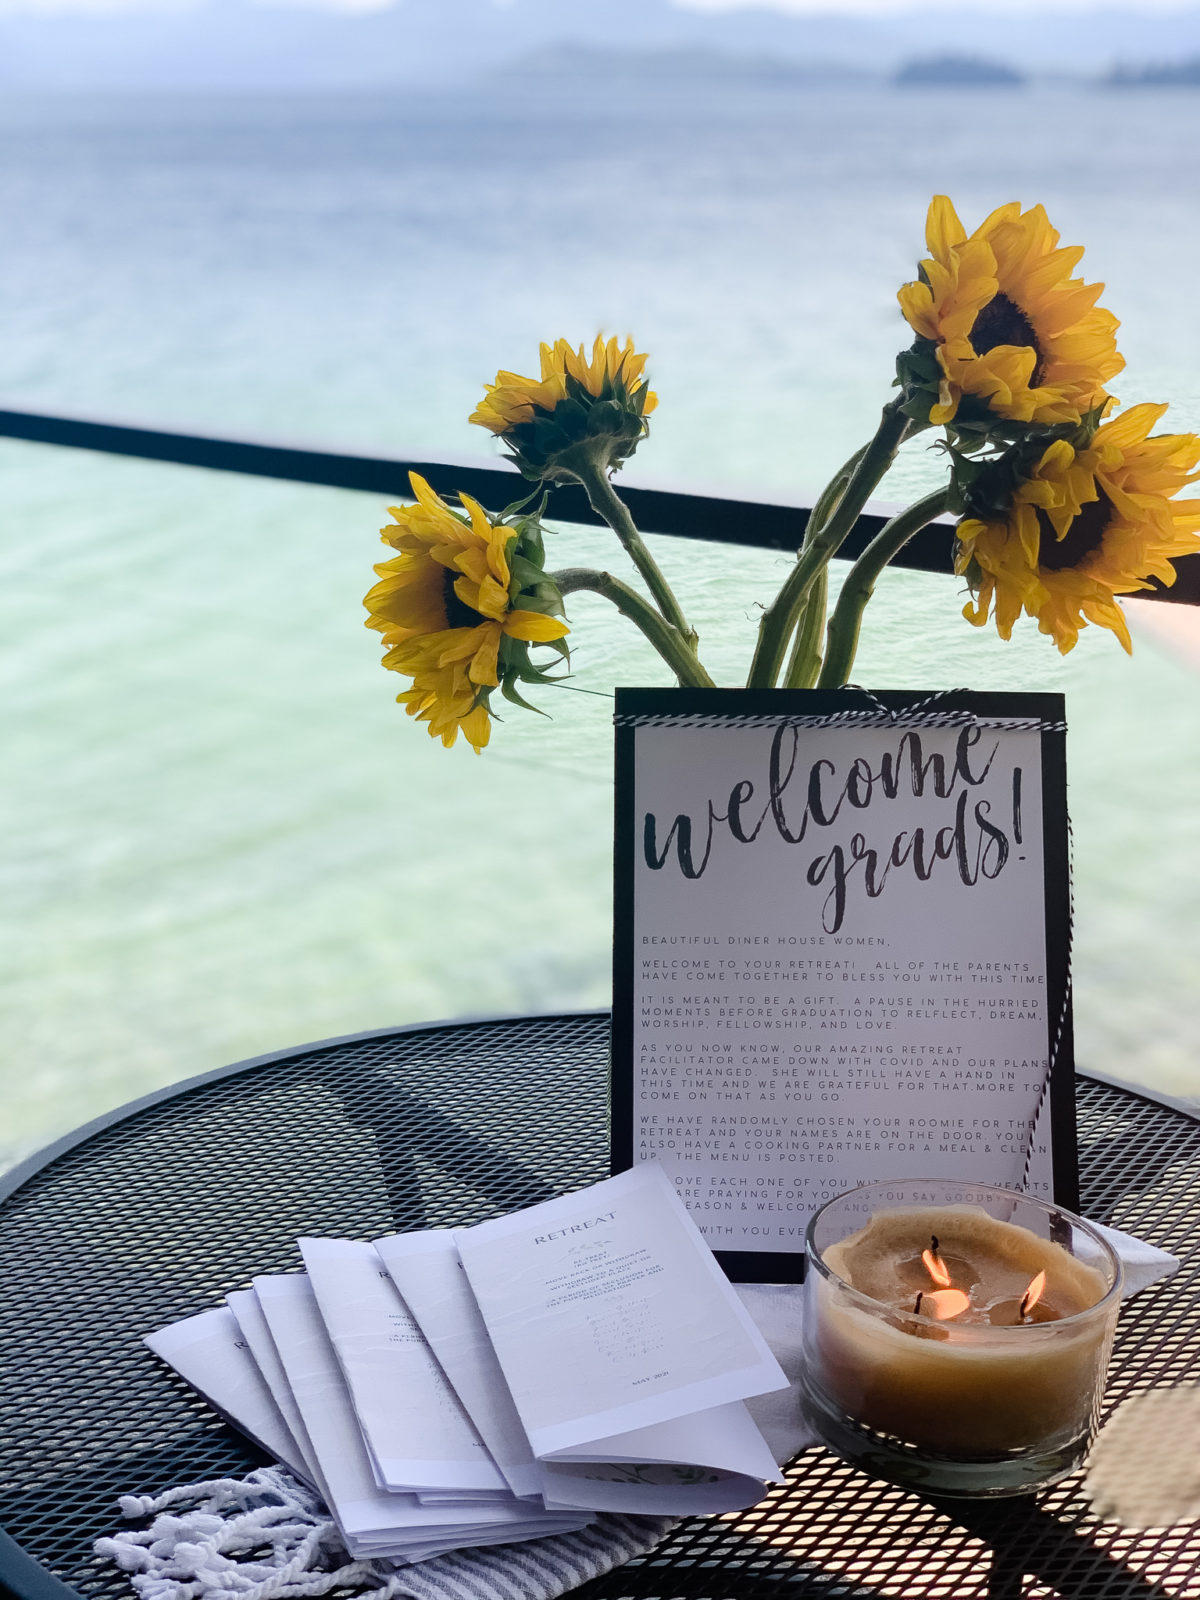 welcome
grads!
BEAUTIFUL DINER HOUSE WOMEN,
WELCOME TO YOUR RETREAT! ALL OF THE PARENTS
HAVE COME TOGETHER TO BLESS YOU WITH THIS TIME
IT IS MEANT TO BE A GIFT. A PAUSE IN THE HURRIED
MOMENTS BEFORE GRADUATION TO RELFLECT, DREAM,
WORSHIP, FELLOWSHIP, AND LOVE.
AS YOU NOW KNOW, OUR AMAZING RETREAT
FACILITATOR CAME DOWN WITH COVID AND OUR PLANS
HAVE CHANGED. SHE WILL STILL HAVE A HAND IN
THIS TIME AND WE ARE GRATEFUL FOR THAT.MORE TO
COME ON THAT AS YOU GO.
WE HAVE RANDOMLY CHOSEN YOUR ROOMIE FOR THE
RETREAT AND YOUR NAMES ARE ON THE DOOR. YOU
ALSO HAVE A COOKING PARTNER FOR A MEAL & CLEAN
UP. THE MENU IS POSTED.
EACH ONE OF YOU HEARTS
ARE PRAYING FOR YOU AS YOU SAY
& WELCOME
WITH YOU
RETREAT
RE·TREAT
MOVE BACK OR WITHDRAW
WITHDRAW TO A QUIET OR
SECLUDED PLACE
A PERIOD OF SECLUSION FOR
THE PURPOSES OF PRAYER AND
MEDITATION
MAY 2021